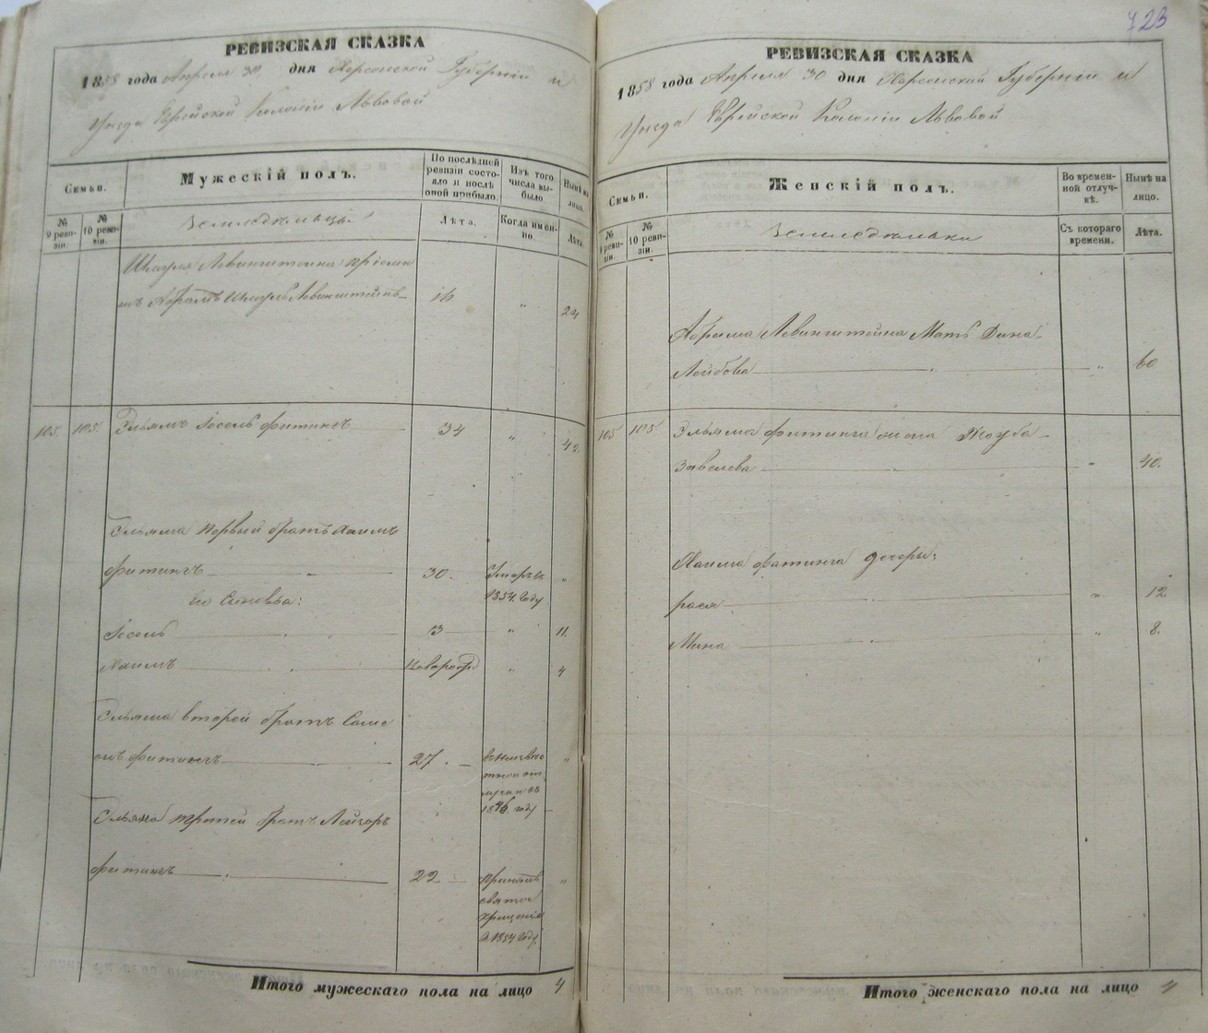 РЕВИЗСКАЯ СКАЗКА
1858 года Апреля 30 дня Херсонской Губерніи и
Уезда Еврейской Колоніи Львовой
Семьи.
Мужескій полъ.
По послѣдней ревизіи состояло и послѣ оной прибыло.
Изъ того числа выбыло
Нынѣ на лицо.
№ 9 ревизіи.
№ 10 ревизіи.
Земледѣльцы
Лѣта.
Когда именно.
Лѣта.
Шмуля Левинштейна
Абрамъ Шмуль Левинштейнъ 24
105. 105. Эльямъ Іосель фитингъ 34 "
Эльяма первый братъ Хаимъ
фитингъ 30. Умеръ въ 1854 году "
его Сыновья:
Іосель 3 " 11.
Хаимъ новорожд " 4
Эльяма второй братъ
фитингъ 27. 1846 году "
Эльяма третей братъ Лейзоръ
фитингъ 22 принялъ святое крещеніе в 1854 году "
Итого мужескаго пола на лицо 4
723
РЕВИЗСКАЯ СКАЗКА
1858 года Апреля 30 дня Херсонской Губерніи и
Уезда Еврейской Колоніи Львовой
Семьи.
Женскій полъ.
Во временной отлучкѣ.
Нынѣ на лицо.
№ 9 ревизіи.
№ 10 ревизіи.
Земледѣльки
Съ котораго времени.
Лѣта.
Абрама Левинштейна Мать Дина
Лейбова " 60
105 105 Эльяма фитинга жена
Завелева " 40.
Хаима фитинга дочери:
рася " 12
Мина " 8.
Итого женскаго пола на лицо 4